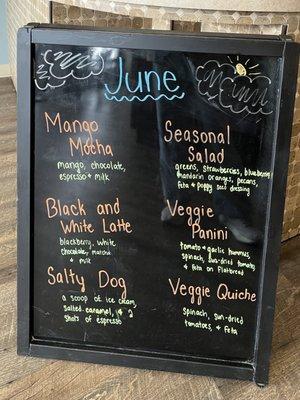 June
Mango
Mocha
mango, chocolate,
espresso & milk
Black and
White Latte
blackberry, white
chocolate, matcha
& milk
Salty Dog
a scoop of ice cream,
salted caramel, & 2
shots of espresso
Seasonal
Salad
greens, strawberries, blueberry
mandarin oranges, pecans,
feta & poppy seed dressing
Veggie
Panini
tomato & garlic hummus,
spinach, sun-dried tomato
& feta on flatbread
Veggie Quiche
spinach, sun-dried
tomatoes, & feta